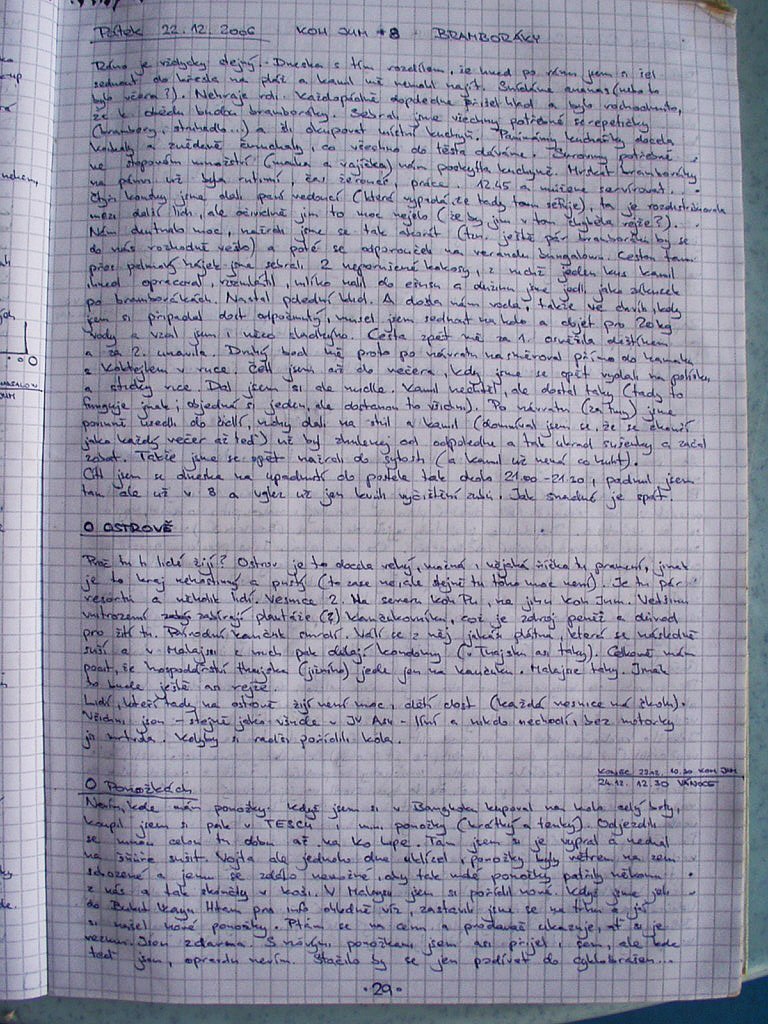 Pátek 22.12.2006 KOH JUM #8 BRAMBORÁKY
Ráno je vždycky stejný. Dneska s tím rozdílem, že hned po ránu jsem si šel
sednout do křesla na pláž a Kamil už nemohl najít. Snídaně ananas (nebo to
bylo včera?). Nehraje roli. Každopádně dopoledne přišel hlad a bylo rozhodnuto,
že k obědu budou bramboráky. Sebrali jsme všechny potřebné serepetičky
(brambory, struhadlo...) a šli okupovat místní kuchyň. Paní kuchařky docela
koukaly a zvědavě čumchaly, co všechno do těsta dáváme. Suroviny potřebné
ve stopovém množství (mouka a vajíčka) nám poskytla kuchyně. Hrstka bramboráky
na pánvi už byla rutinní, čas žeroucí, práce. 12.45 a můžeme servírovat.
Čtyři kousky jsme dali paní vedoucí (která vypadá, že tady tom šéfuje), ta je rozdistribuovala
mezi další lidi, ale očividně jim to moc nejelo (že by jim v tom chyběla rejže?).
Nám chutnalo moc, nažrali jsme se tak akorát (tzn. ještě pár bramboráků by se
do nás rozhodně vešlo) a poté se odporoučeli na verandu bungalovu. Cestou tam
přes palmový hájek jsme sebrali 2 neporušené kokosy, z nichž jeden kus Kamil
ihned opracoval, rozmlátil, mlíko nalil do ešusu a dužinu jsme jedli jako zákusek
po bramborácích. Nastal polední klid. A došla nám voda, takže ve chvíli, kdy
jsem si připadal dost odpočnutý, musel jsem sednout na kolo a objet pro 20 kg
vody a vzal jsem i něco sladkýho. Cesta zpět mě za 1. osvěžila deštěm
a za 2. unavila. Druhý bod mě proto po návratu nasměroval přímo do hamaku
s koktejlem v ruce. Četl jsem až do večera, kdy jsme se opět vydali na polívku
a sticky rice. Dal jsem si ale nudle. Kamil nechtěl, ale dostal taky (tady to
funguje jinak; objedná si jeden, ale dostanou to všichni). Po návratu (za tmy) jsme
povinně usedli do židlí, nohy dali na stůl a Kamil (domníval jsem se, že se ukončí
jako každý večer až teď) už byl zmlsaný od odpoledne a tak ukrad sušenky a začal
zobat. Takže jsme se opět nažrali do sytosti (a Kamil už nemá co kulit).
Chtl jsem se dneska na upadnutí do postele tak okolo 21.00-21.30, padnul jsem
tam ale už v 8 a vylez už jen kvůli vyčištění zubů. Jak snadné je spát.
O OSTROVĚ
Proč tu ti lidé žijí? Ostrov je to docela velký, možná i nějaká říčka tu pramení, jinak
je to kraj nehostinný a pustý (to zase ne, ale stejně tu toho moc není). Je tu pár
resortů a několik lidí. Vesnice 2. Na severu Koh Pu, na jihu Koh Jum. Většinu
vnitrozemí zabírají plantáže (?) kaučukovníku, což je zdroj peněz a důvod
pro žití tu. Přírodní kaučuk smrdí. Válí se z něj jakási plátna, která se následně
suší a v Malajsii z nich pak dělají kondomy (v Thajsku asi taky). Celkově mám
pocit, že hospodářství thajska (jižního) jede jen na kaučuku. Malajsie taky. Jinak
to bude ještě asi rejže.
Lidí, kteří tady na ostrově žijí není moc, dětí dost (každá vesnice má školu).
Všichni jsou - stejně jako všude v JV Asii - líní a nikdo nechodí, bez motorky
je mrtvola. Kdyby si radši pořídili kola.
KONEC 22.12. 10.30 KOH JUM
24.12. 12.30 VÁNOCE
O PONOŽKÁCH
Nevím, kde mám ponožky. Když jsem si v Bangkoku kupoval na kolo celý boty,
koupil jsem si pak v TESCU i mini ponožky (krátký a tenký). Odjezdili
se mnou celou tu dobu až na Ko Lipe. Tam jsem si je vypral a nechal
na šňůře sušit. Vojta ale jednoho dne uklízel, ponožky byly větrem na zem
shozené a jemu se zdálo nemožné, aby tak malé ponožky patřily někomu
z nás a tak skončily v koši. V Malajsii jsem si pořídil nové. Když jsme jeli
do Bukit Kayu Hitam pro info ohledně víz, zastavili jsme se na trhu a já
si našel nové ponožky. Ptám se na cenu a prodavač ukazuje, ať si je
vezmu. Jsou zdarma. S novými ponožkami jsem asi přijel i sem, ale kde
teď jsou, opravdu nevím. Stačilo by se jen podívat do cyklobrašen...
·29·